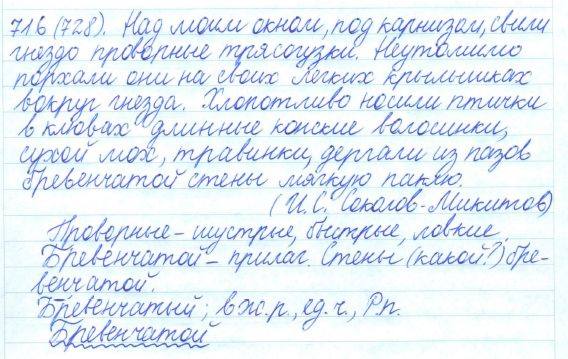 716 (728). Над моим окном, под карнизом, свили
гнездо проворные трясогузки. Неутомимо
порхали они на своих легких крылышках
вокруг гнезда. Хлопотливо носили птички
в клювах длинные конские волосинки,
сухой мох, травинки, дергали из пазов
бревенчатой стены мягкую паклю.
(И.С. Соколов-Микитов)
Проворные – шустрые, быстрые, ловкие.
Бревенчатой – прилаг. Стены (какой?) бре-
венчатой.
Бревенчатый; в ж.р., ед.ч., Р.п.
Бревенчатой